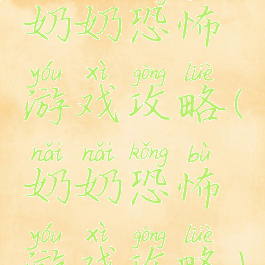 奶奶恐怖
yóu xì gōng lüè
游戏攻略(
nǎi nǎi kǒng bù
奶奶恐怖
yóu xì gōng lüè
游戏攻略)